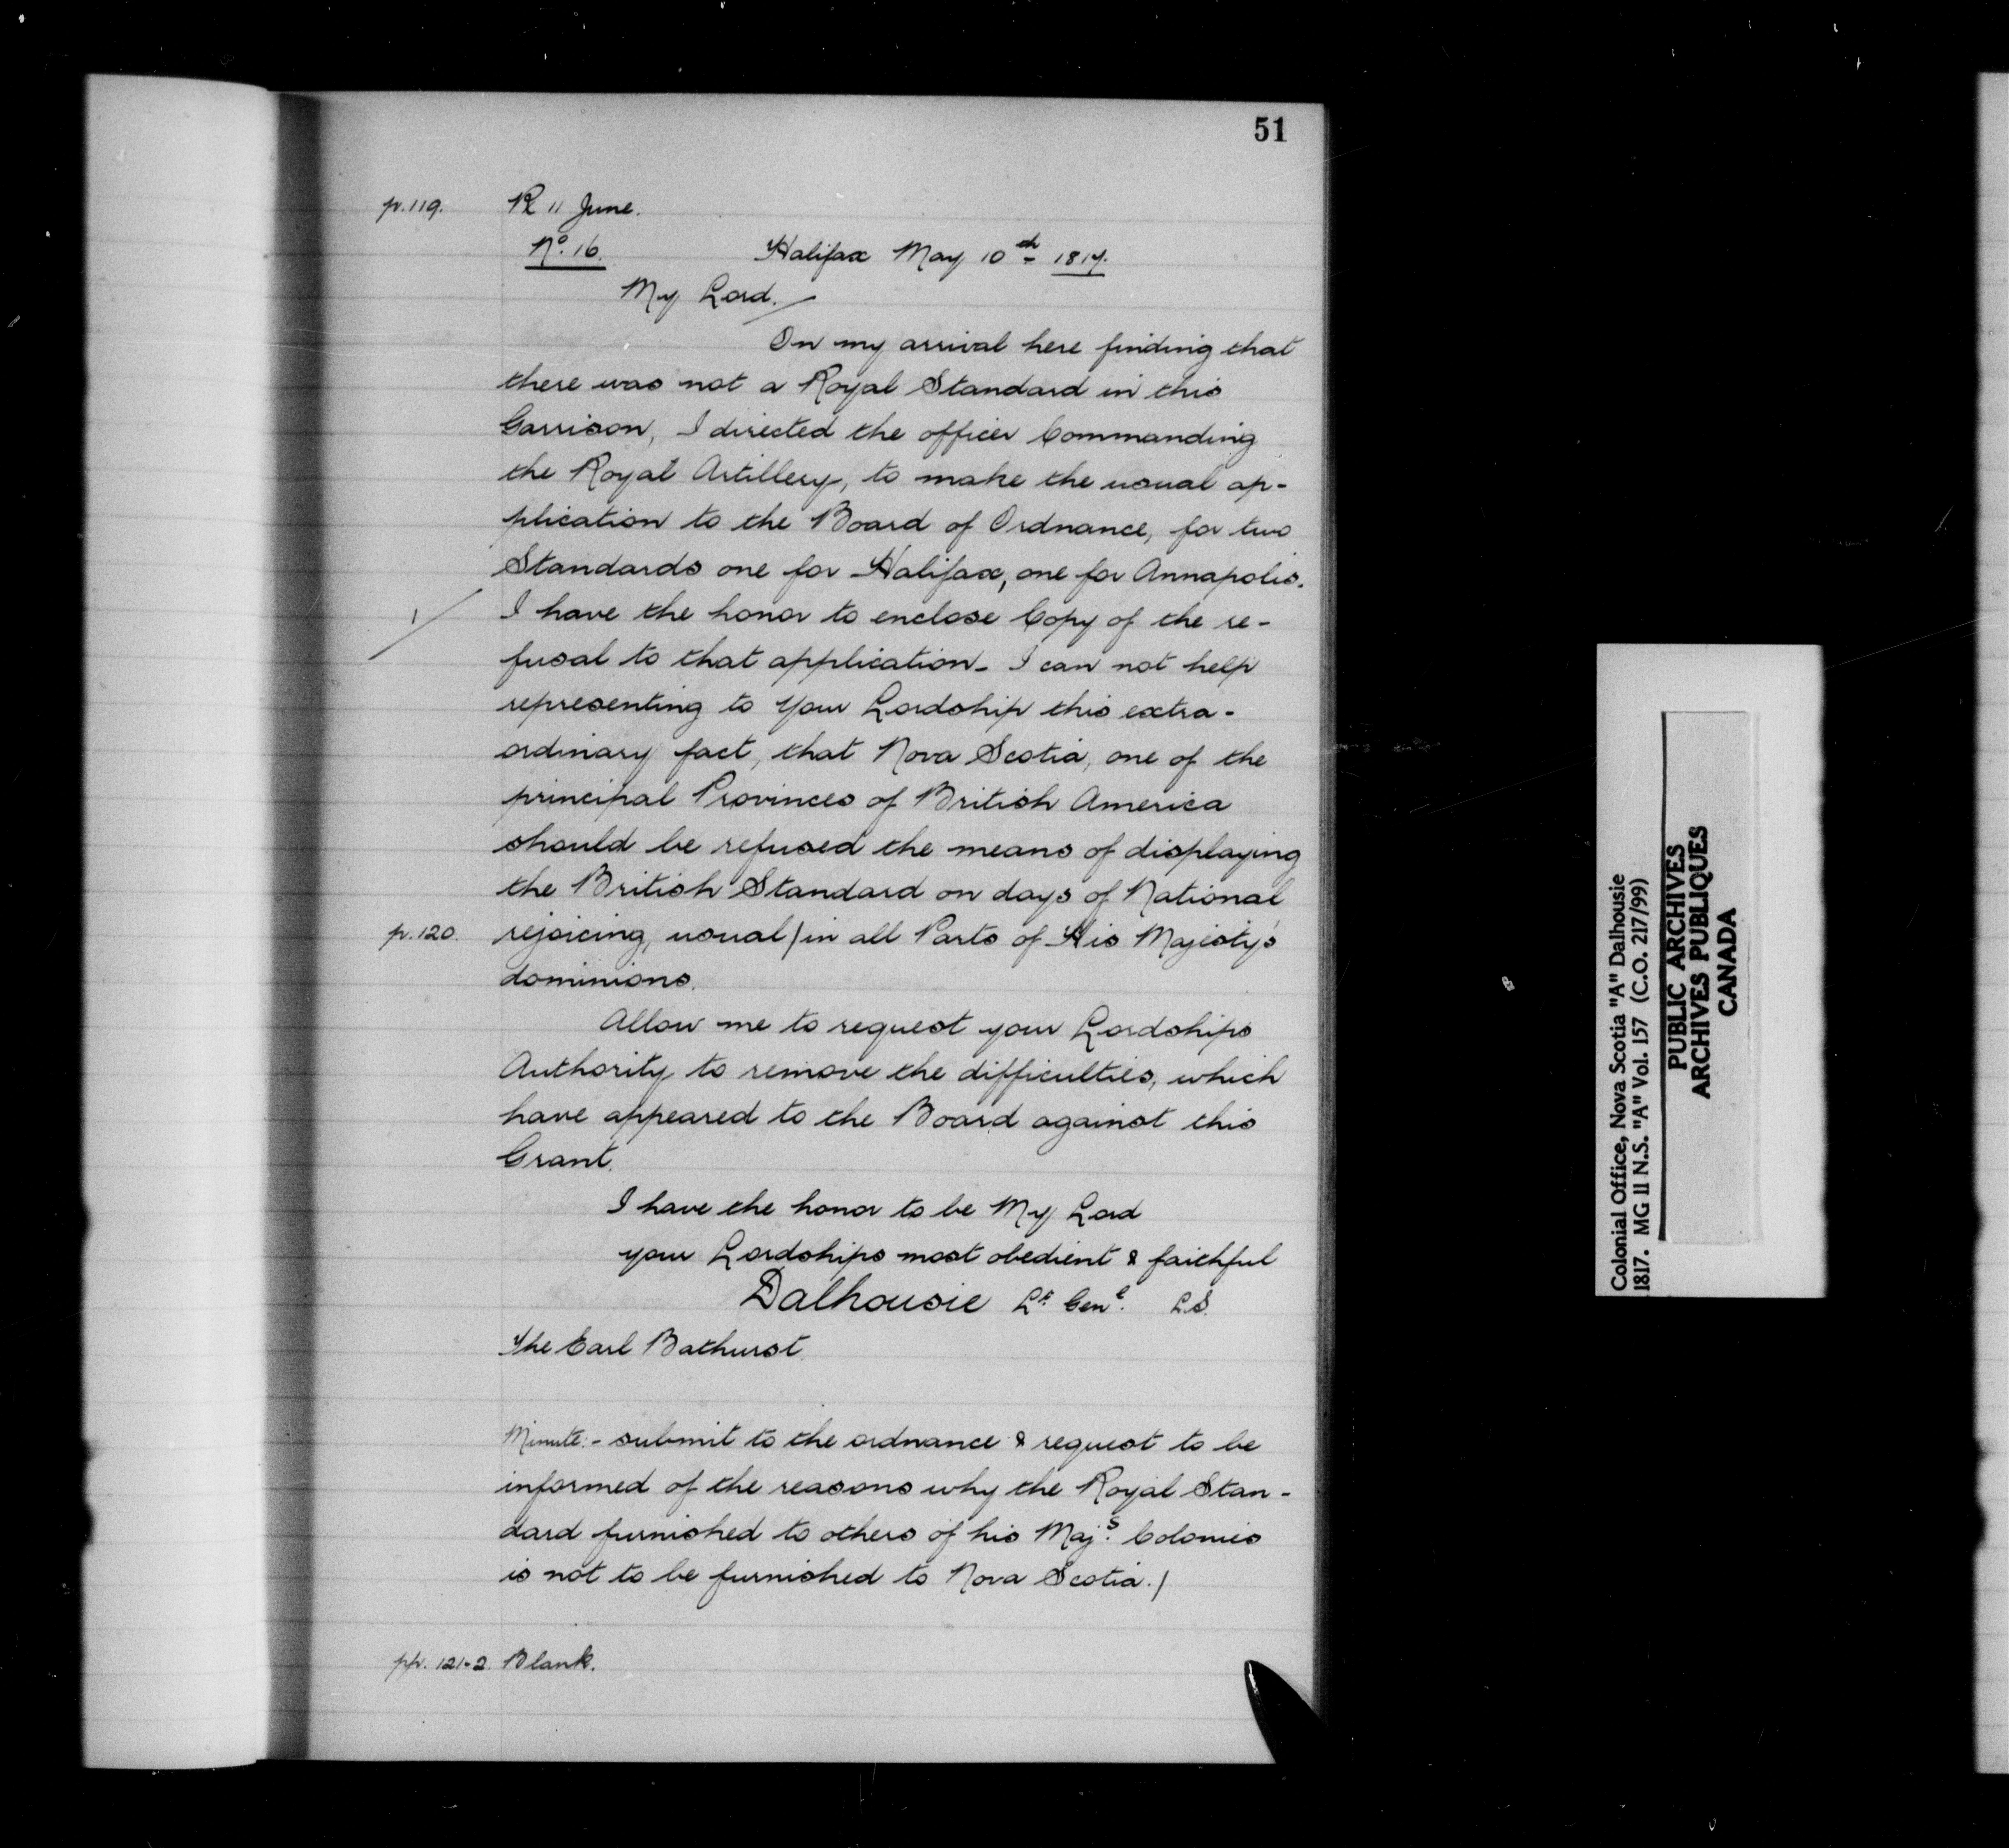 51
p.119. R 11 June.
No. 16. Halifax May 10th 1817.
My Lord.
On my arrival here finding that
there was not a Royal Standard in this
Garrison, I directed the officer Commanding
the Royal Artillery, to make the usual ap-
plication to the Board of Ordnance, for two
Standards one for Halifax, one for Annapolis.
I have the honor to enclose Copy of the re-
fusal to that application - I can not help
representing to Your Lordship this extra-
ordinary fact, that Nova Scotia, one of the
principal Provinces of British America
should be refused the means of displaying
the British Standard on days of National
p.120. rejoicing, usual/in all Parts of His Majesty's
dominions.
Allow me to request your Lordships
Authority to remove the difficulties, which
have appeared to the Board against this
Grant.
I have the honor to be My Lord
your Lordships most obedient & faithful
Dalhousie Lt. Genl. L.S.
The Earl Bathurst.
Minute:- submit to the ordnance & request to be
informed of the reasons why the Royal Stan-
dard furnished to others of his Majs. Colonies
is not to be furnished to Nova Scotia./
pp. 121-2. Blank.
Colonial Office, Nova Scotia "A" Dalhousie
1817. MG 11 N.S. "A" Vol. 157 (C.O. 217/99)
PUBLIC ARCHIVES
ARCHIVES PUBLIQUES
CANADA